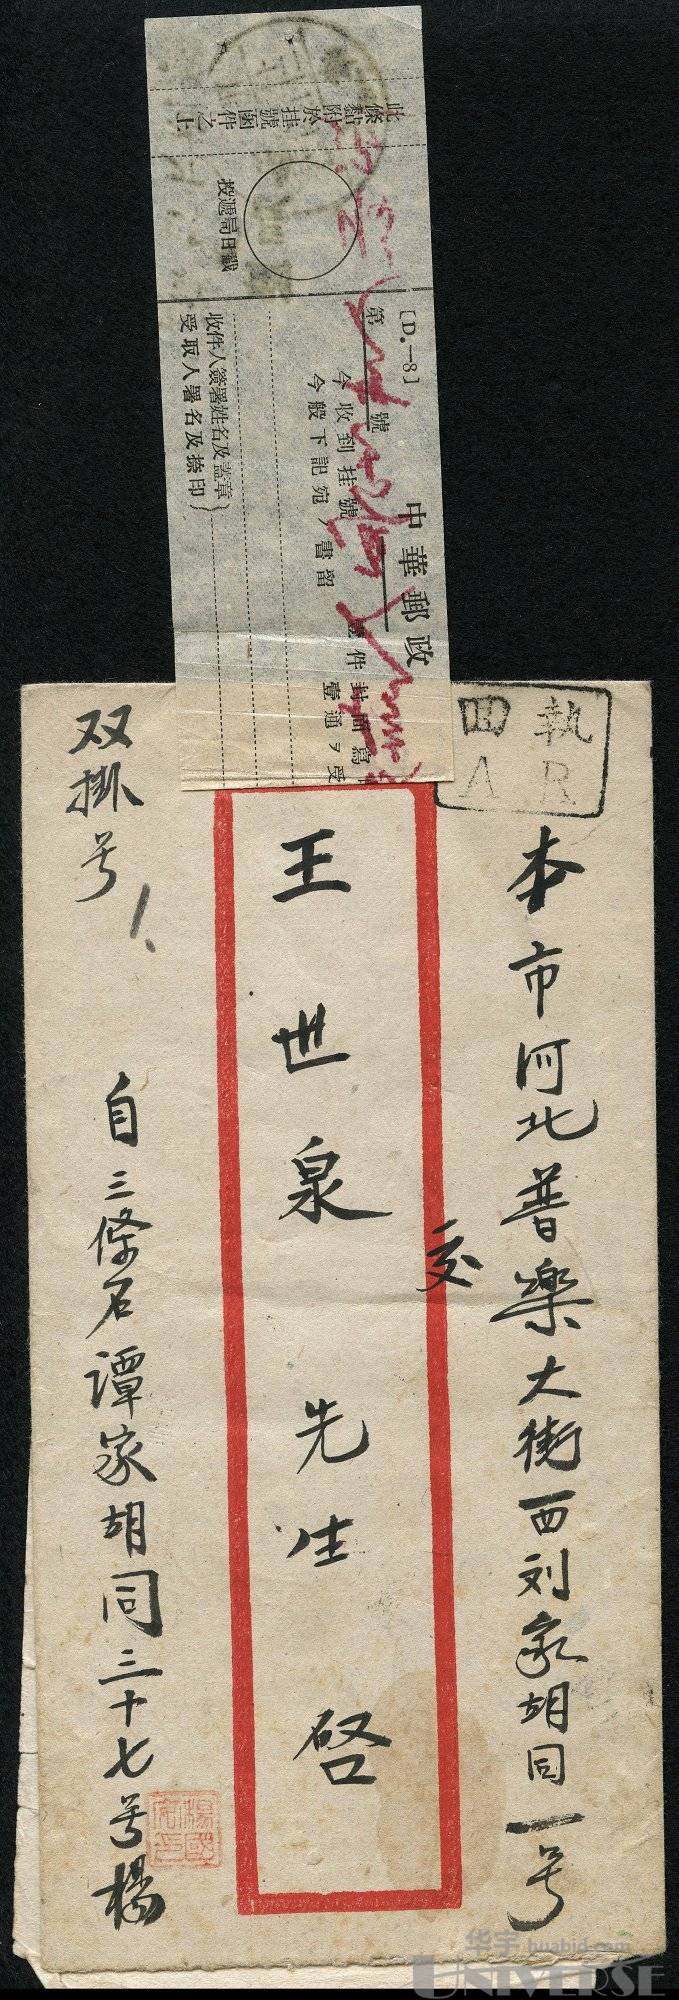 此條黏附於挂號函件之上
投遞局日戳
[D.—8]
中華郵政
第 號
今收到挂號
今般下記宛ノ書留
件封面寫
壹通ヲ受
收件人簽署姓名及蓋章
受取人署名及捺印
執 回
R A
本市河北普樂大街西刘家胡同一号
交
王世泉先生 啓
双掛号
自三條石譚家胡同三十七号楊
华宇 huabid.com
UNIVERSE